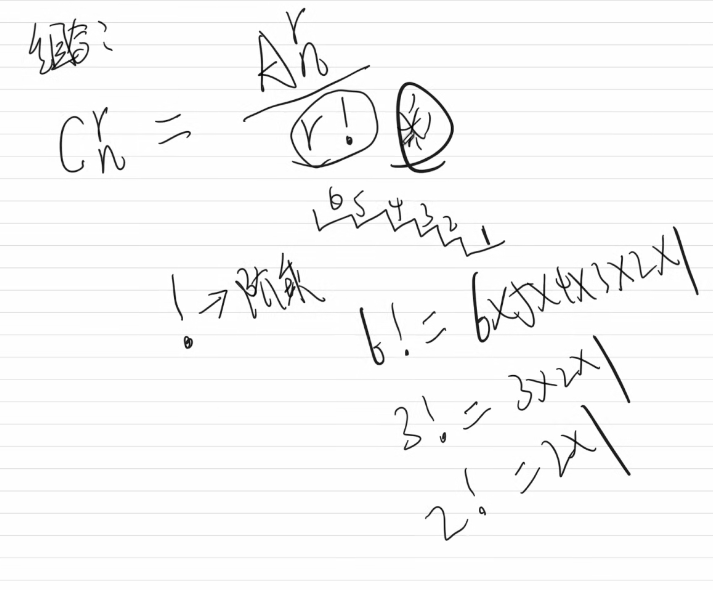 组合:
C_n^r = A_n^r / r!
6 5 4 3 2 1
! → 阶乘
6! = 6×5×4×3×2×1
3! = 3×2×1
2! = 2×1